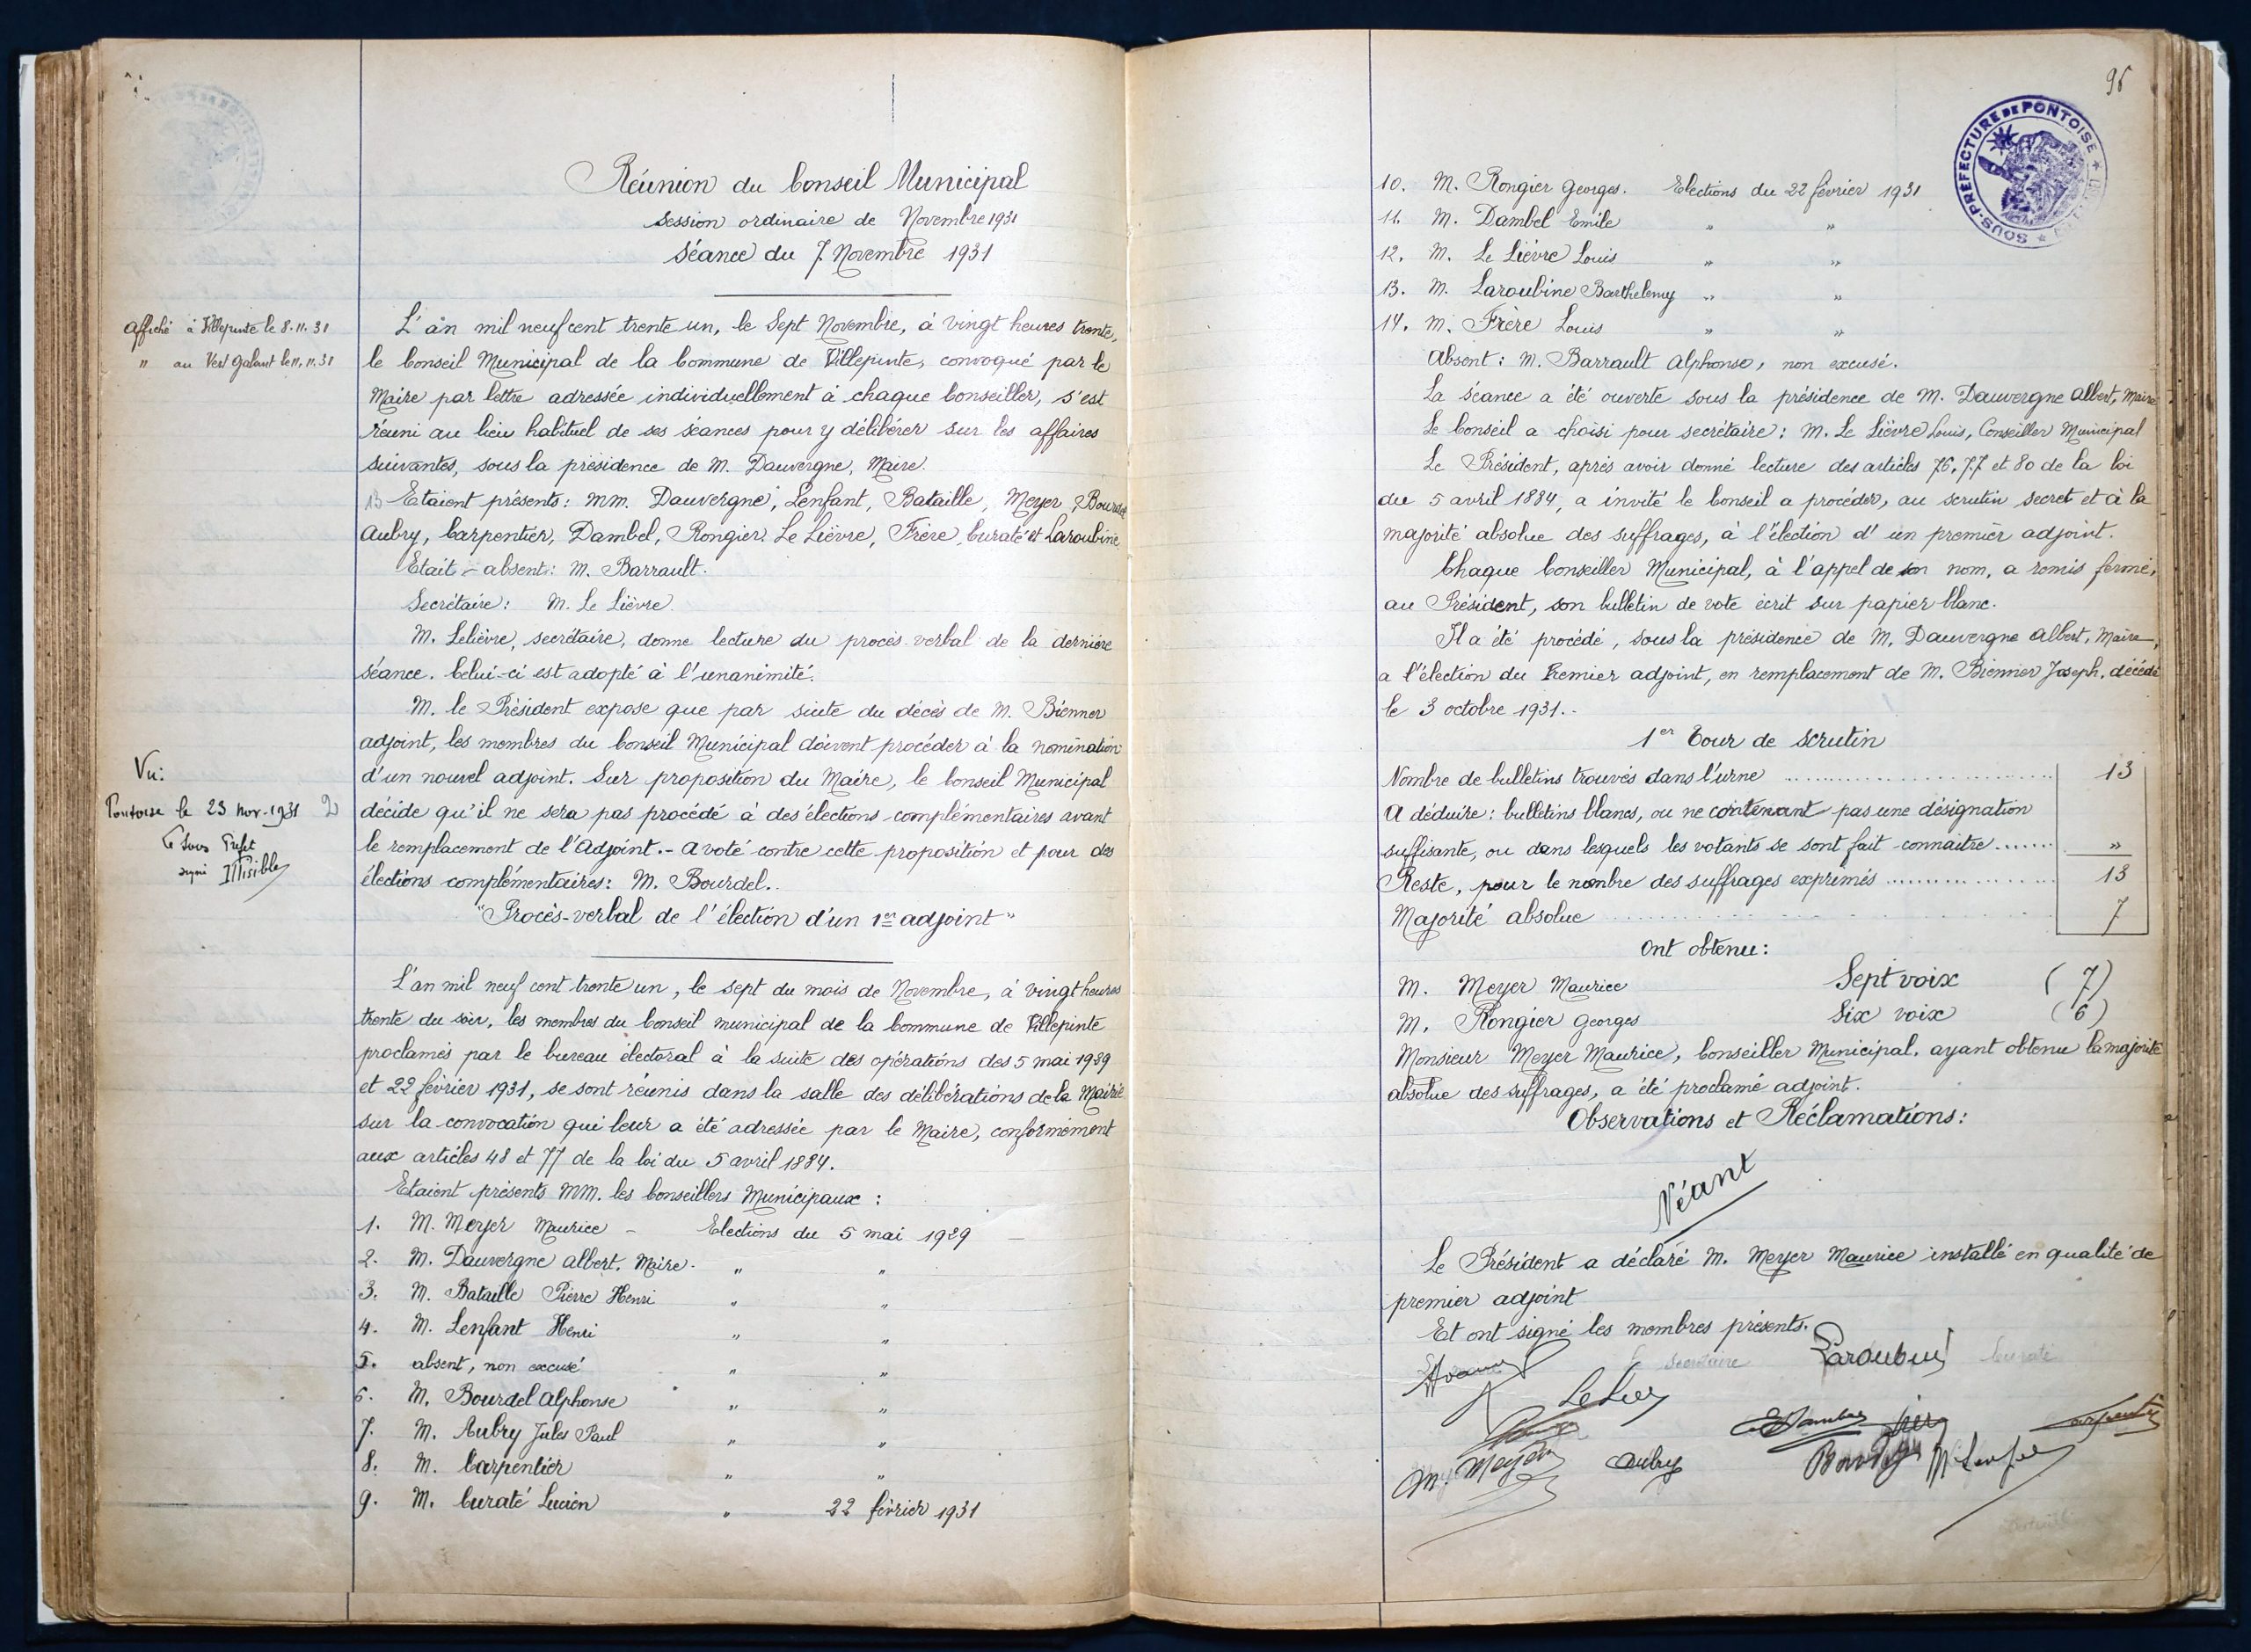 Réunion du Conseil Municipal
session ordinaire de Novembre 1931
Séance du 7 Novembre 1931
Affiché à Villepinte le 8.11.31
" au Vert Galant le 11.11.31
L'an mil neuf cent trente un, le Sept Novembre, à vingt heures trente,
le Conseil Municipal de la Commune de Villepinte, convoqué par le
Maire par lettre adressée individuellement à chaque Conseiller, s'est
réuni au lieu habituel de ses séances pour y délibérer sur les affaires
suivantes, sous la présidence de M. Dauvergne, Maire.
13 Etaient présents: MM. Dauvergne, Lenfant, Bataille, Meyer, Bourdel
Aubry, Carpentier, Dambel, Rongier, Le Lièvre, Frère, Curaté et Laroubine
Etait absent: M. Barrault.
Secrétaire: M. Le Lièvre.
M. Lelièvre, secrétaire, donne lecture du procès-verbal de la dernière
séance. Celui-ci est adopté à l'unanimité.
M. le Président expose que par suite du décès de M. Bienner
adjoint, les membres du Conseil Municipal doivent procéder à la nomination
d'un nouvel adjoint. Sur proposition du Maire, le Conseil Municipal
décide qu'il ne sera pas procédé à des élections complémentaires avant
le remplacement de l'Adjoint.- A voté contre cette proposition et pour des
élections complémentaires: M. Bourdel..
Vu:
Pontoise le 23 Nov. 1931
Le Sous Préfet
signé Illisible
"Procès-verbal de l'élection d'un 1er adjoint"
L'an mil neuf cent trente un, le sept du mois de Novembre, à vingt heures
trente du soir, les membres du Conseil municipal de la Commune de Villepinte
proclamés par le bureau électoral à la suite des opérations des 5 mai 1929
et 22 février 1931, se sont réunis dans la salle des délibérations de la Mairie
sur la convocation qui leur a été adressée par le Maire, conformément
aux articles 48 et 77 de la loi du 5 avril 1884.
Etaient présents MM. les Conseillers Municipaux :
1. M. Meyer Maurice - Elections du 5 mai 1929 -
2. M. Dauvergne Albert. Maire. " "
3. M. Bataille Pierre Henri " "
4. M. Lenfant Henri " "
5. absent, non excusé " "
6. M. Bourdel Alphonse " "
7. M. Aubry Jules Paul " "
8. M. Carpentier " "
9. M. Curaté Lucien " 22 février 1931
SOUS-PRÉFECTURE DE PONTOISE
10. M. Rongier Georges. Elections du 22 février 1931
11. M. Dambel Emile " "
12. M. Le Lièvre Louis " "
13. M. Laroubine Barthelemy " "
14. M. Frère Louis " "
Absent: M. Barrault Alphonse, non excusé.
La séance a été ouverte sous la présidence de M. Dauvergne Albert, Maire
Le Conseil a choisi pour secrétaire: M. Le Lièvre Louis, Conseiller Municipal
Le Président, après avoir donné lecture des articles 76, 77 et 80 de la loi
du 5 avril 1884, a invité le Conseil a procéder, au scrutin secret et à la
majorité absolue des suffrages, à l'élection d'un premier adjoint.
Chaque Conseiller Municipal, à l'appel de son nom, a remis fermé,
au Président, son bulletin de vote écrit sur papier blanc.
Il a été procédé, sous la présidence de M. Dauvergne Albert, Maire,
a l'élection du Premier adjoint, en remplacement de M. Bienner Joseph, décédé
le 3 octobre 1931..
1er Tour de scrutin
Nombre de bulletins trouvés dans l'urne ........ 13
A déduire: bulletins blancs, ou ne contenant pas une désignation
suffisante, ou dans lesquels les votants se sont fait connaitre ....... "
Reste, pour le nombre des suffrages exprimés ........ 13
Majorité absolue ........ 7
Ont obtenu:
M. Meyer Maurice Sept voix (7)
M. Rongier Georges Six voix (6)
Monsieur Meyer Maurice, Conseiller Municipal, ayant obtenu la majorité
absolue des suffrages, a été proclamé adjoint.
Observations et Réclamations:
Néant
Le Président a déclaré M. Meyer Maurice installé en qualité de
premier adjoint
Et ont signé les membres présents.
secrétaire Laroubine Curaté
M. Meyer Aubry